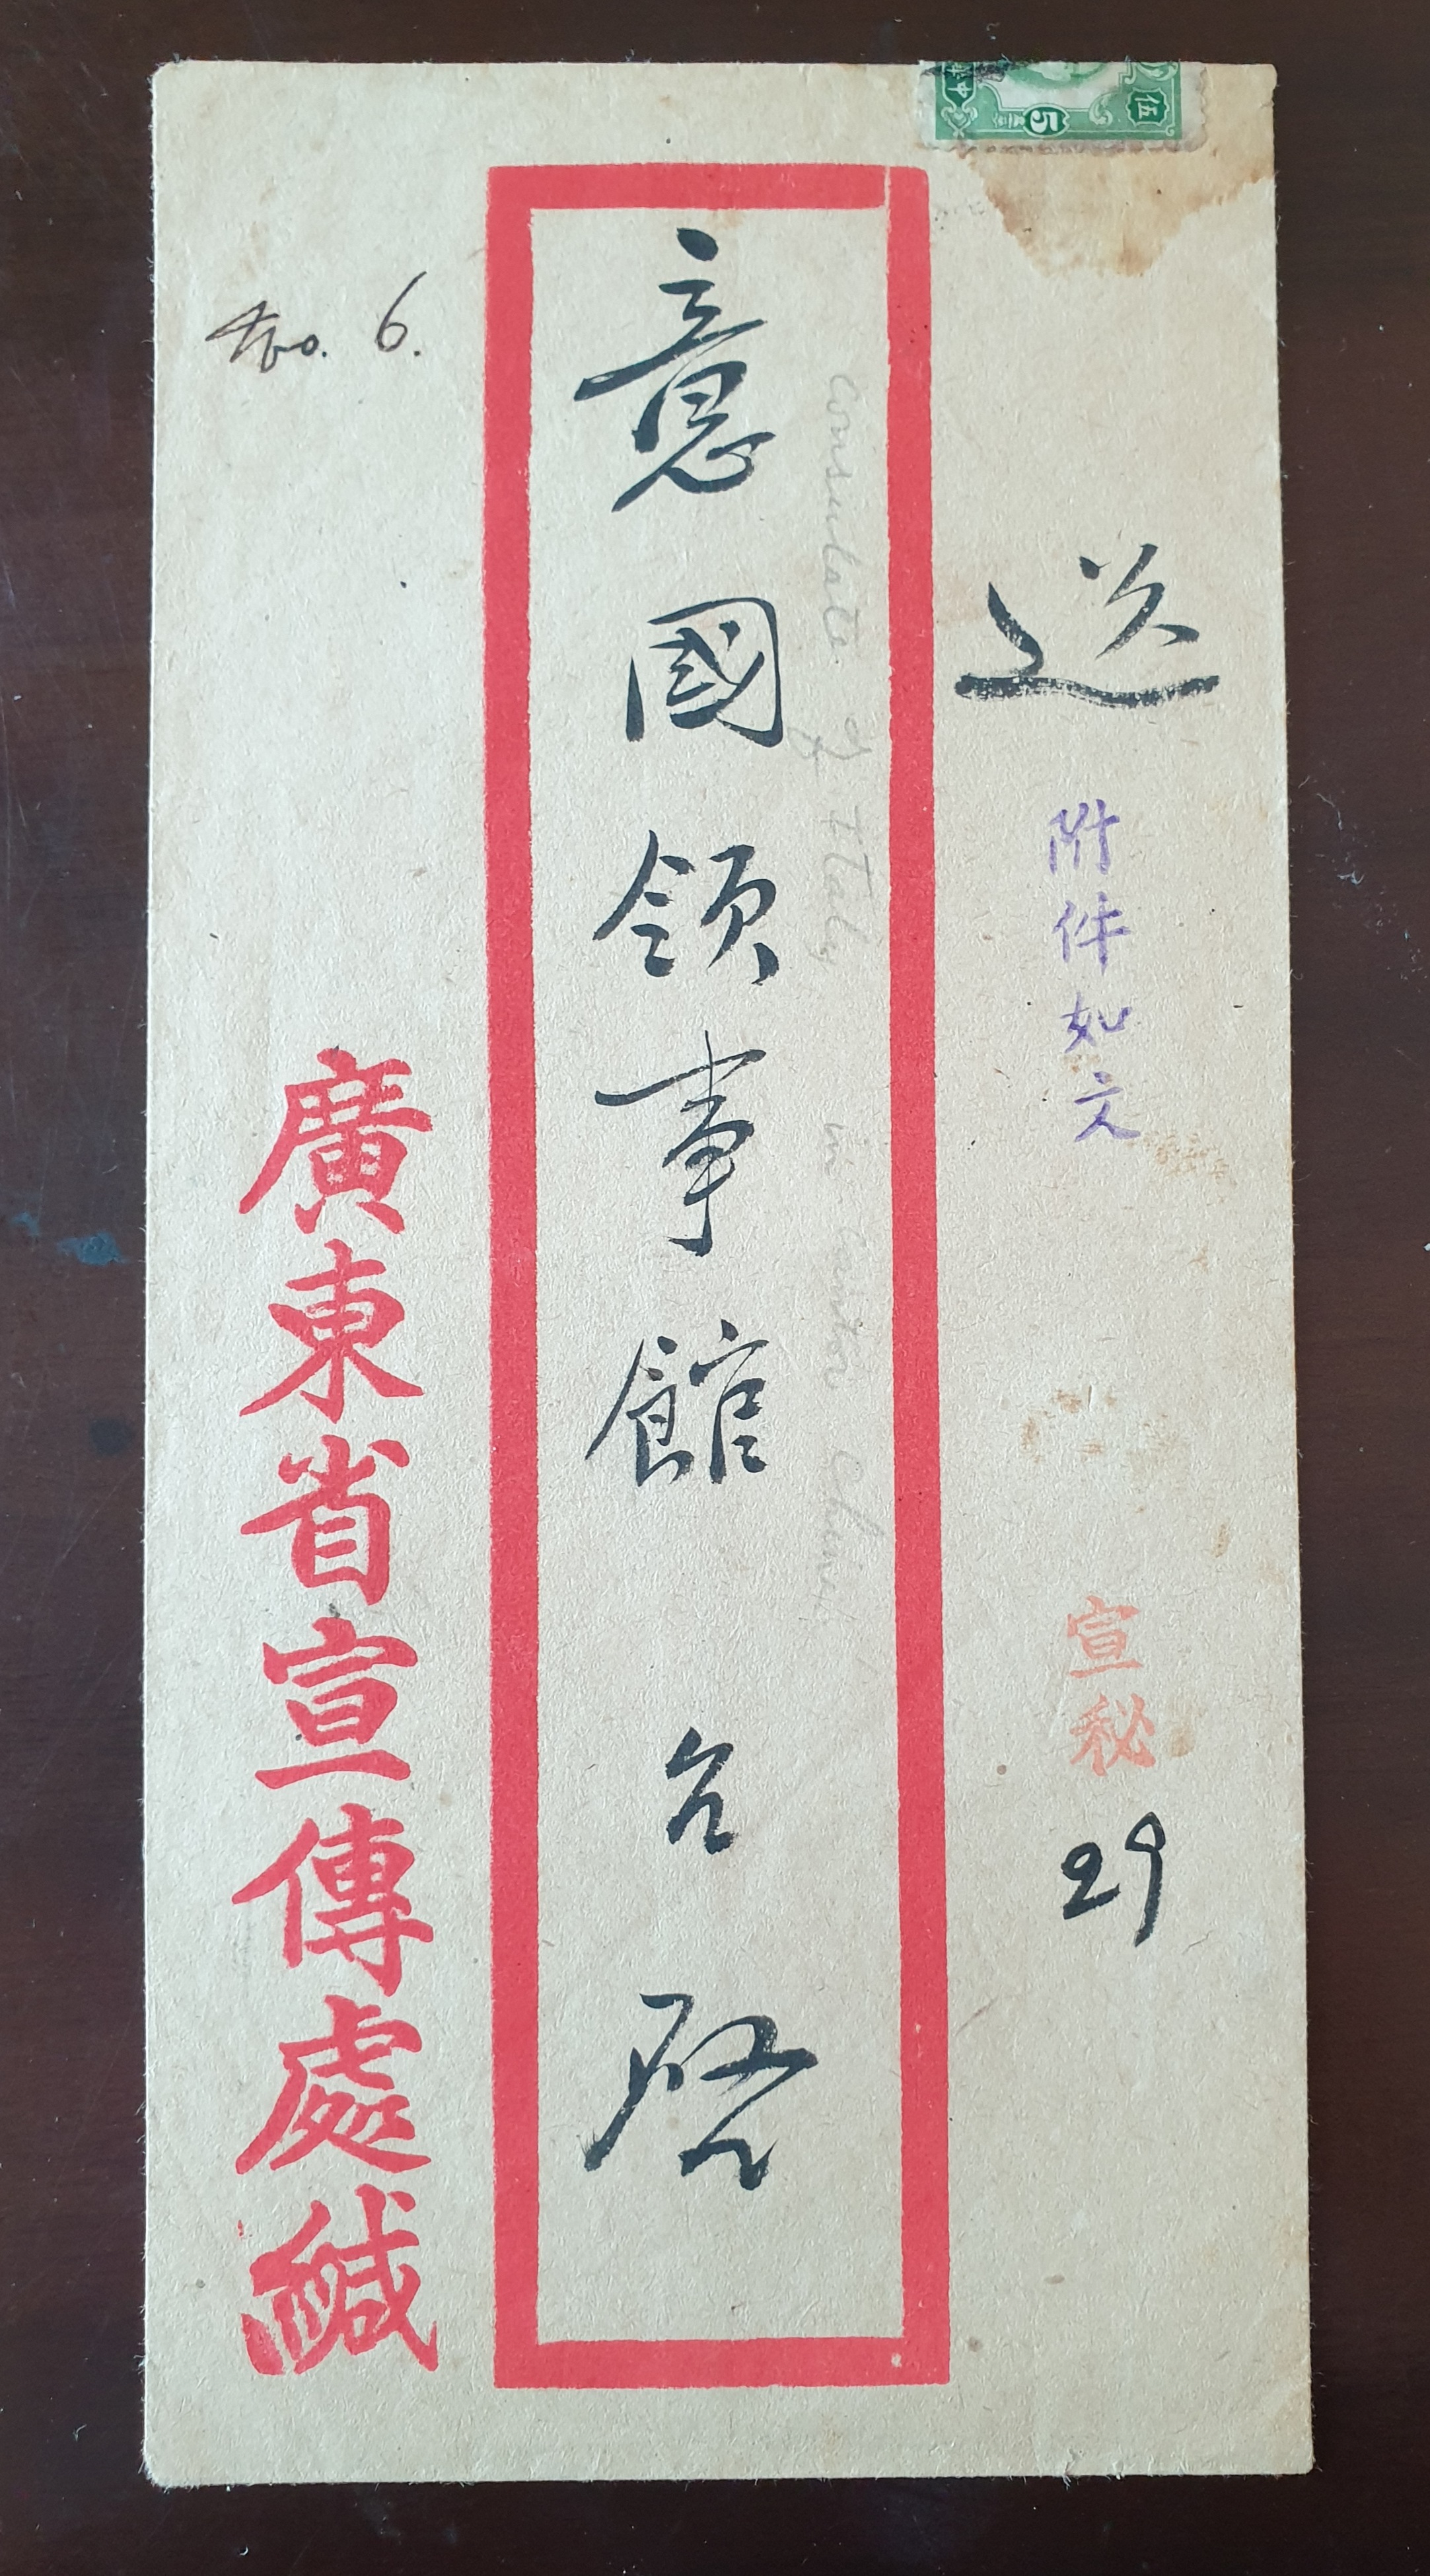 伍
5
送
附件如文
宣秘
29
Consulate of Italy in Canton China
意國領事館 台啓
No. 6.
廣東省宣傳處緘